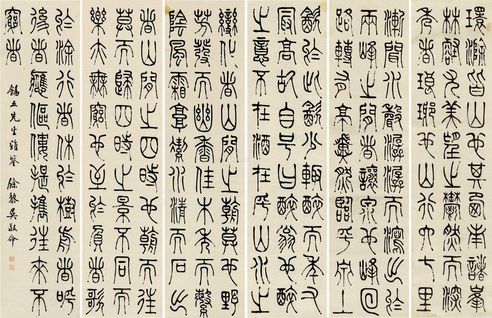 環滁皆山也其西南諸峯
林壑尤美望之蔚然而深
秀者琅琊也山行六七里
漸聞水聲潺潺而瀉出於
兩峯之間者讓泉也峯回
路轉有亭翼然臨乎泉上
飲於此飲少輒醉而年又
最高故自號曰醉翁也醉
之意不在酒在乎山水之
變化者山間之朝暮也野
芳發而幽香佳木秀而繁
陰風霜高潔水清而石出
者山間之四時也朝而往
暮而歸四時之景不同而
樂亦無窮也至於負者歌
於滁行者休於樹前者呼
後者應傴僂提攜往來不
窮者
錫五先生雅鑒